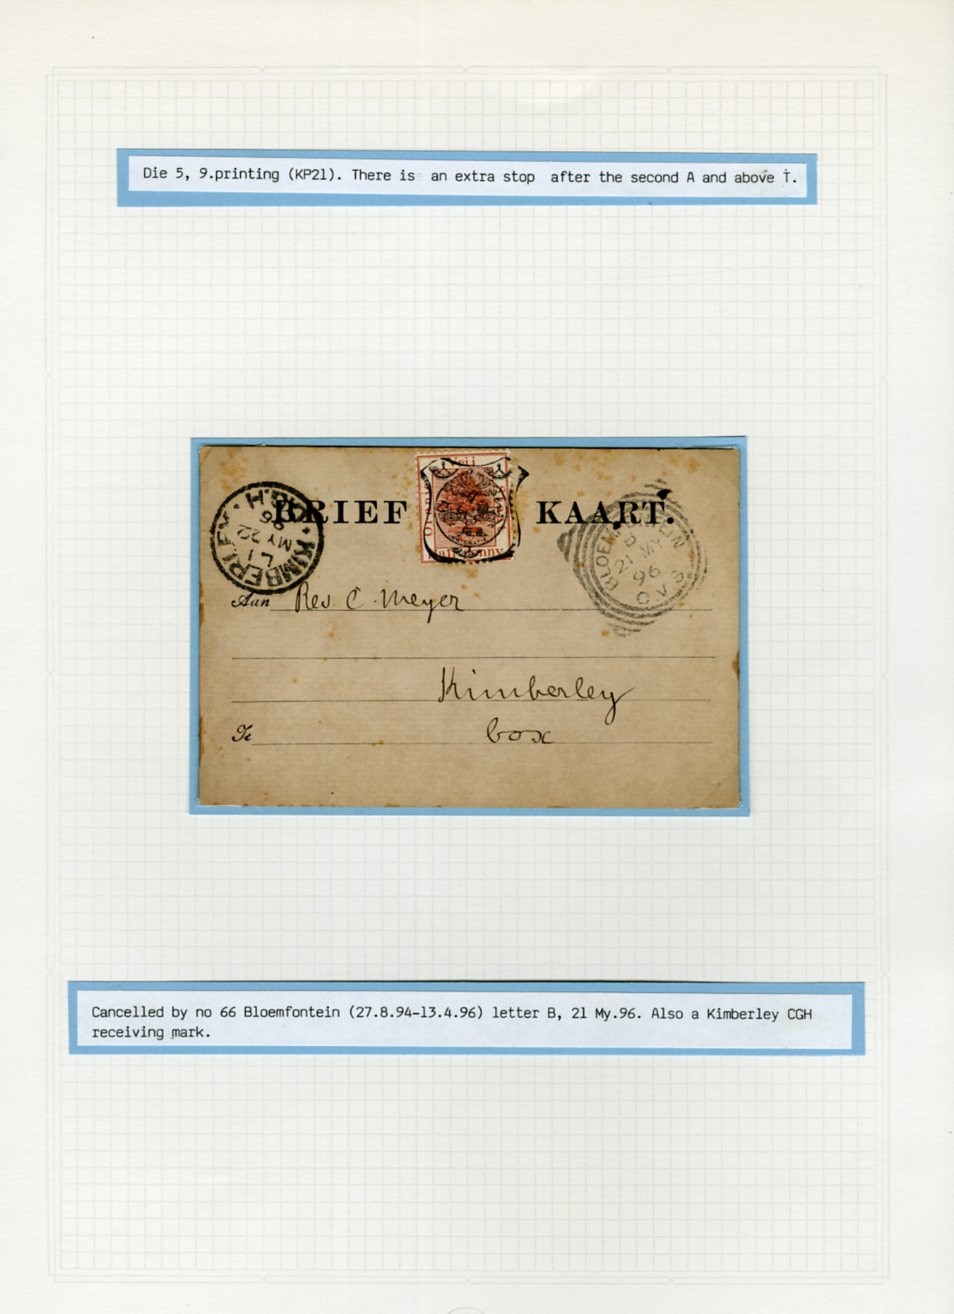 Die 5, 9.printing (KP21). There is an extra stop after the second A and above T.
BRIEF KAART.
Half Penny
KIMBERLEY
1
MY 22
96
BLOEMFONTEIN
B
21 MY
96
O.V.S.
Aan Rev. C. Meyer
Kimberley
Te box
Cancelled by no 66 Bloemfontein (27.8.94-13.4.96) letter B, 21 My.96. Also a Kimberley CGH
receiving mark.